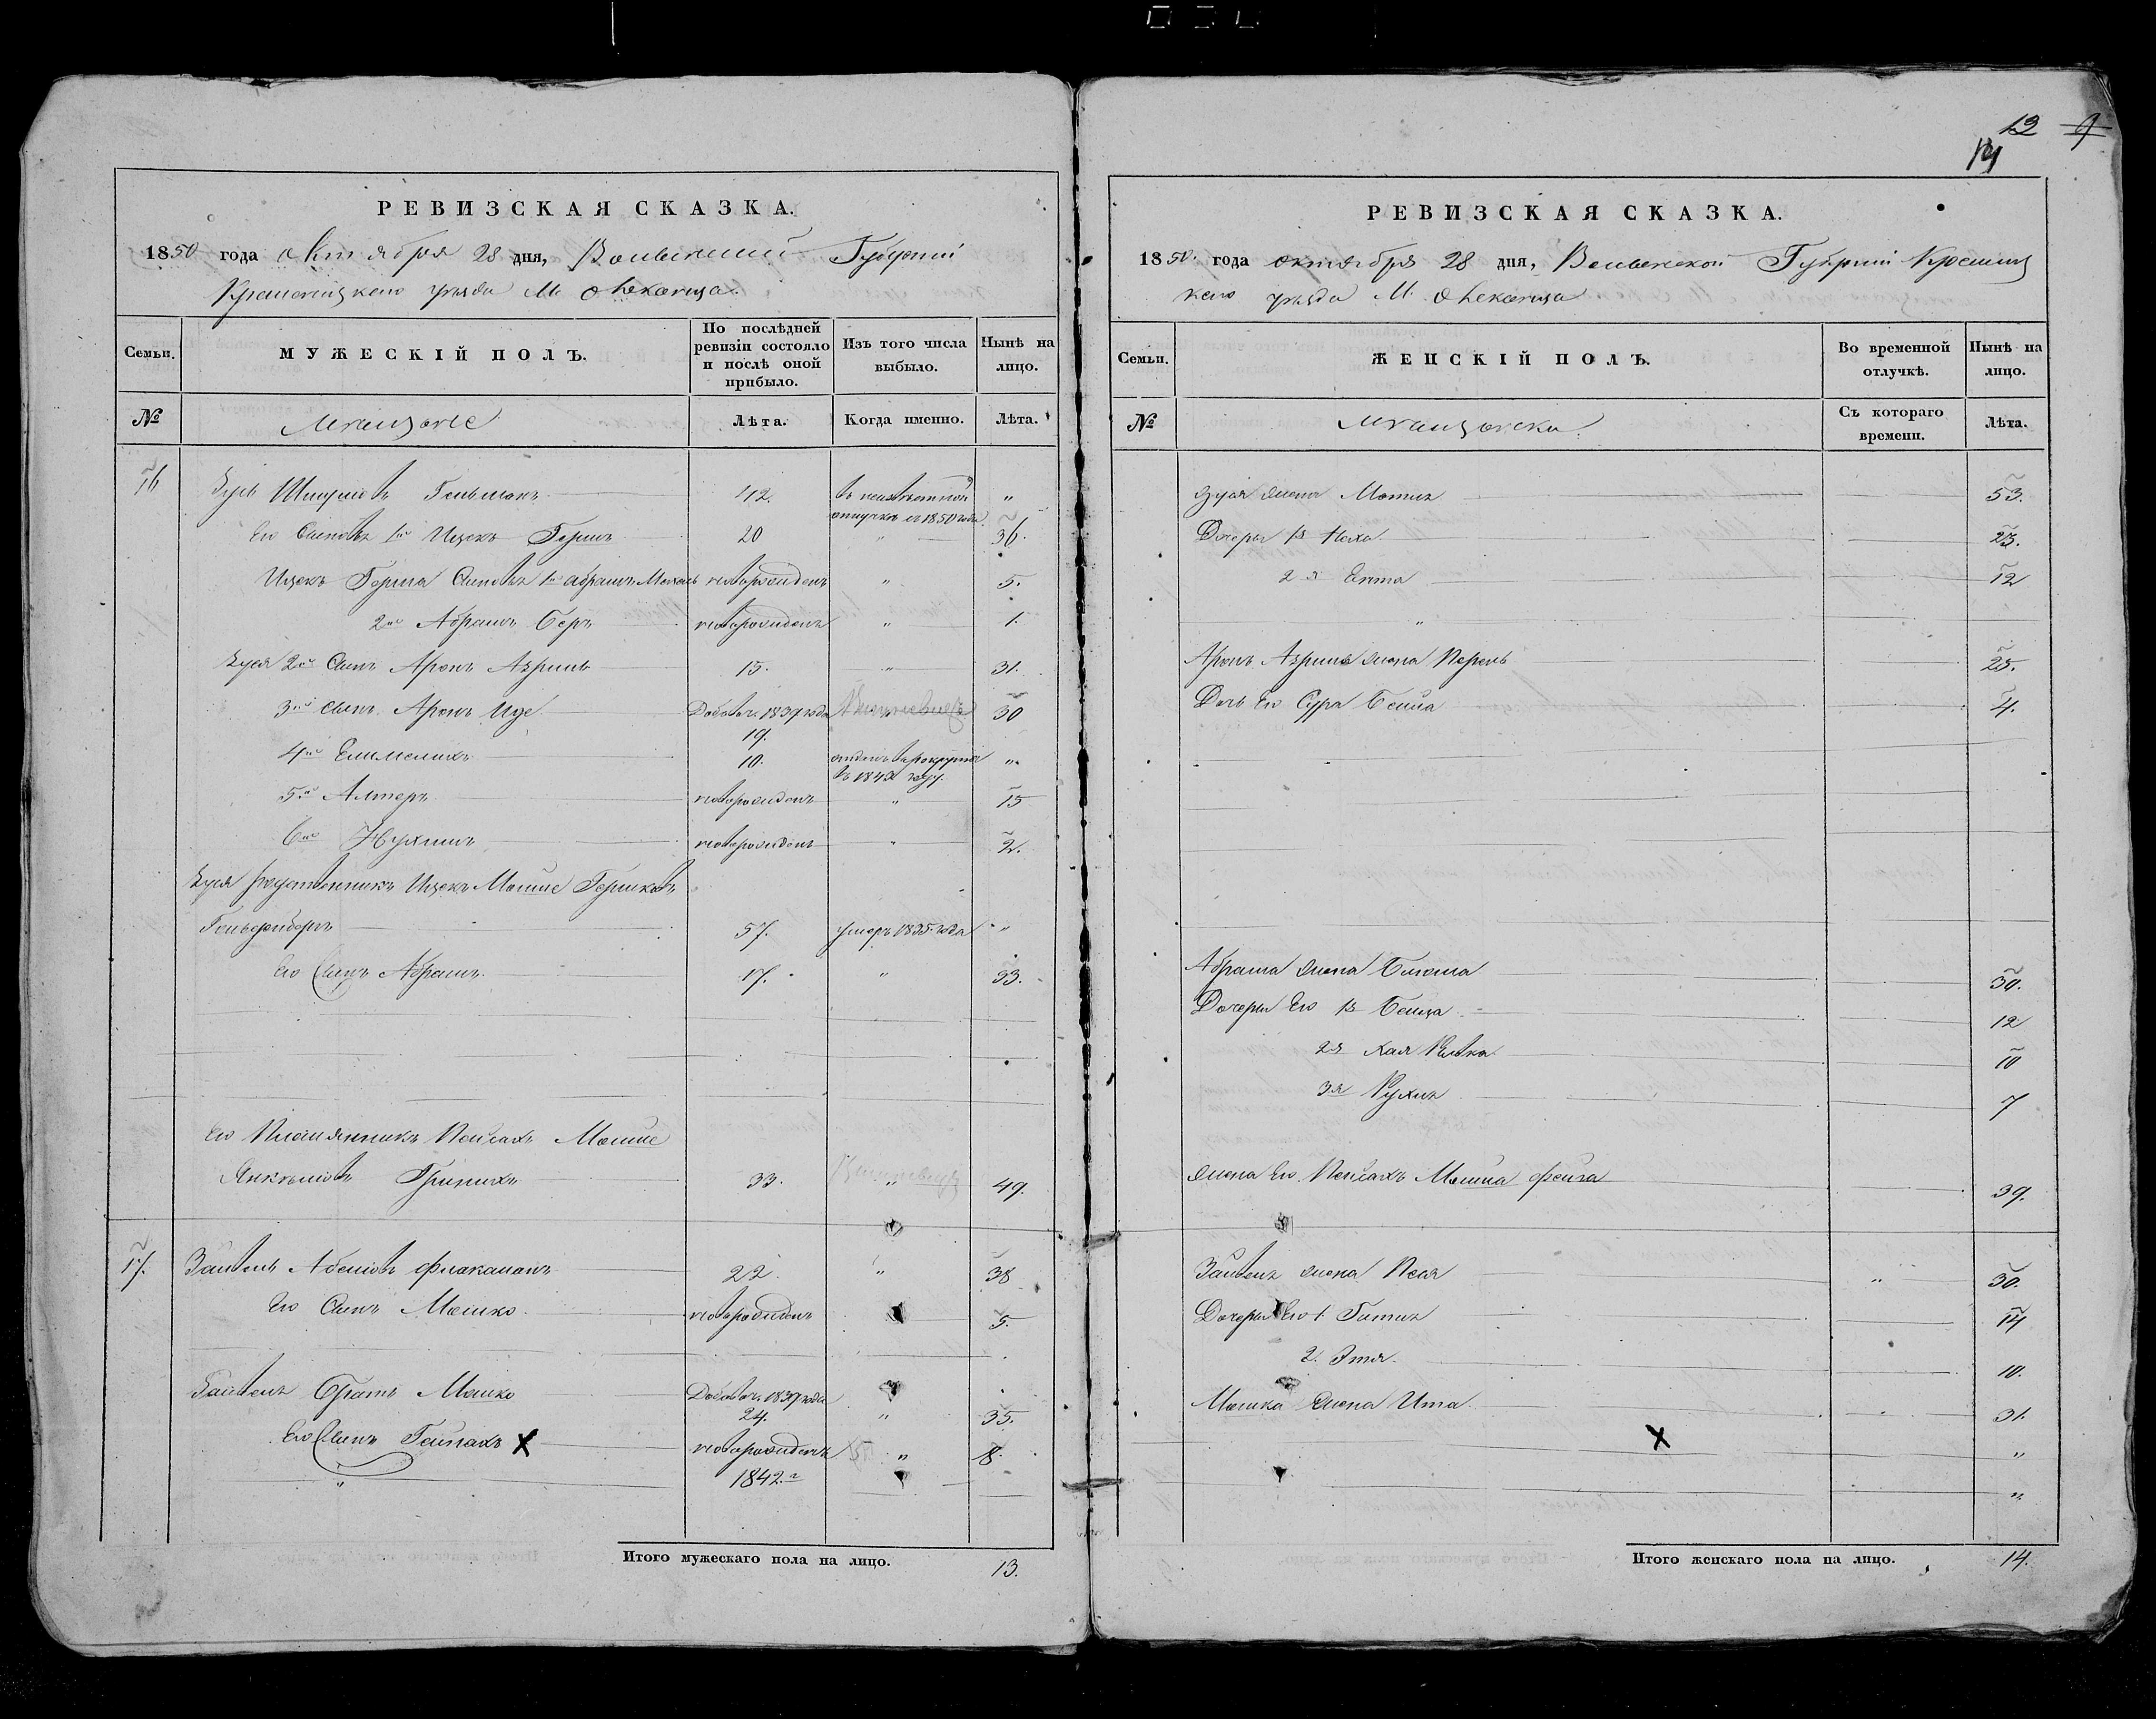 13 9
14
РЕВИЗСКАЯ СКАЗКА.
1850 года Октября 28 дня, Волынской Губерніи
Кременецкаго уѣзда М.
Семьи.
МУЖЕСКІЙ ПОЛЪ.
По послѣдней ревизіи состояло и послѣ оной прибыло.
Изъ того числа выбыло.
Нынѣ на лицо.
№
Мѣщане
Лѣта.
Когда именно.
Лѣта.
16 Зусь Шмулевъ Гельманъ 42. въ неизвѣстной отлучкѣ съ 1850 года „
Его Сыновья 1й Ицекъ Гершъ 20 „ 36.
Ицекъ Герша Сыновья 1й Абрамъ новорожденъ „ 5.
2й Абрамъ Беръ новорожденъ „ 1.
Зуся 2й Сынъ Аронъ Азриль 15. „ 31.
3й Сынъ Аронъ Иде Добавоч. 1837 года 19. „ 30
4й Елимелихъ 10. отданъ въ рекруты въ году „
5й Алтеръ новорожденъ „ 15
6й Нухимъ новорожденъ „ 2.
Зуся родственникъ Ицекъ Мошие Гершковъ
57. умеръ 1835 года „
Его Сынъ Абрамъ 17. „ 33.
Его Племянникъ Пейсахъ Мошие
Янкелевъ 33. „ 49.
17. Зайвель Абелевъ 22. „ 38
Его Сынъ Мошко новорожденъ 5.
Зайвеля Братъ Мошко Добавоч. 1837 года 24. „ 35.
Его Сынъ X новорожденъ 1842 г. „ 8.
„
Итого мужескаго пола на лицо. 13.
РЕВИЗСКАЯ СКАЗКА.
1850 года Октября 28 дня, Волынской Губерніи Кременец
каго уѣзда М.
Семьи.
ЖЕНСКІЙ ПОЛЪ.
Во временной отлучкѣ.
Нынѣ на лицо.
№
Мѣщански
Съ котораго времени.
Лѣта.
Зуся жена Мотля 53.
Дочери 1я Неха 23.
2я Ента 12
„
Аронъ Азриля жена Перель 25.
Дочь Его Сура Бейла 4.
Абрама жена Блюма 30.
Дочери Его 1я Бейла 12
2я Хая Ривка 10
3я Рухля 7
Жена Его Пейсахъ Мошка Фейга 39.
Зайвеля жена Песя „ 30.
Дочери Его 1. Гитля 14
2. Этя 10.
Мошка жена Ита 31.
X „
„
Итого женскаго пола на лицо. 14.